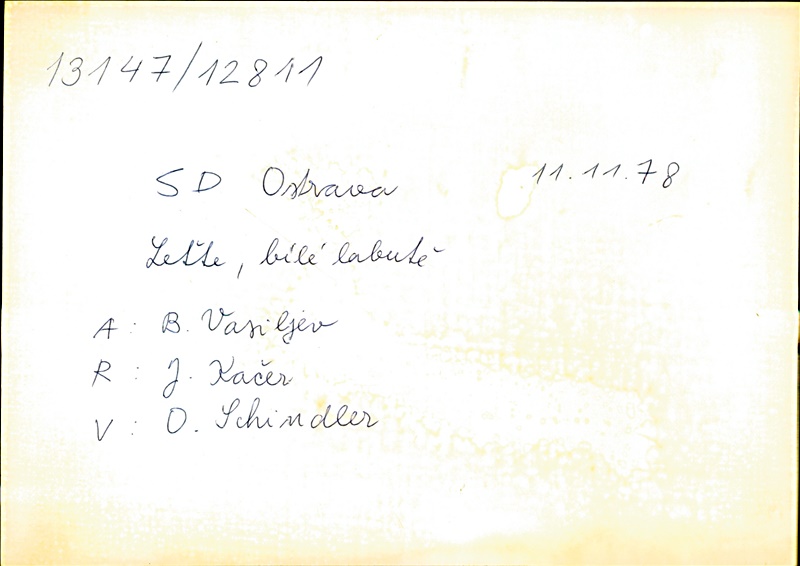 13147/12811
SD Ostrava 11.11.78
Leťte, bílé labutě
A: B. Vasiljev
R: J. Kačer
V: O. Schindler